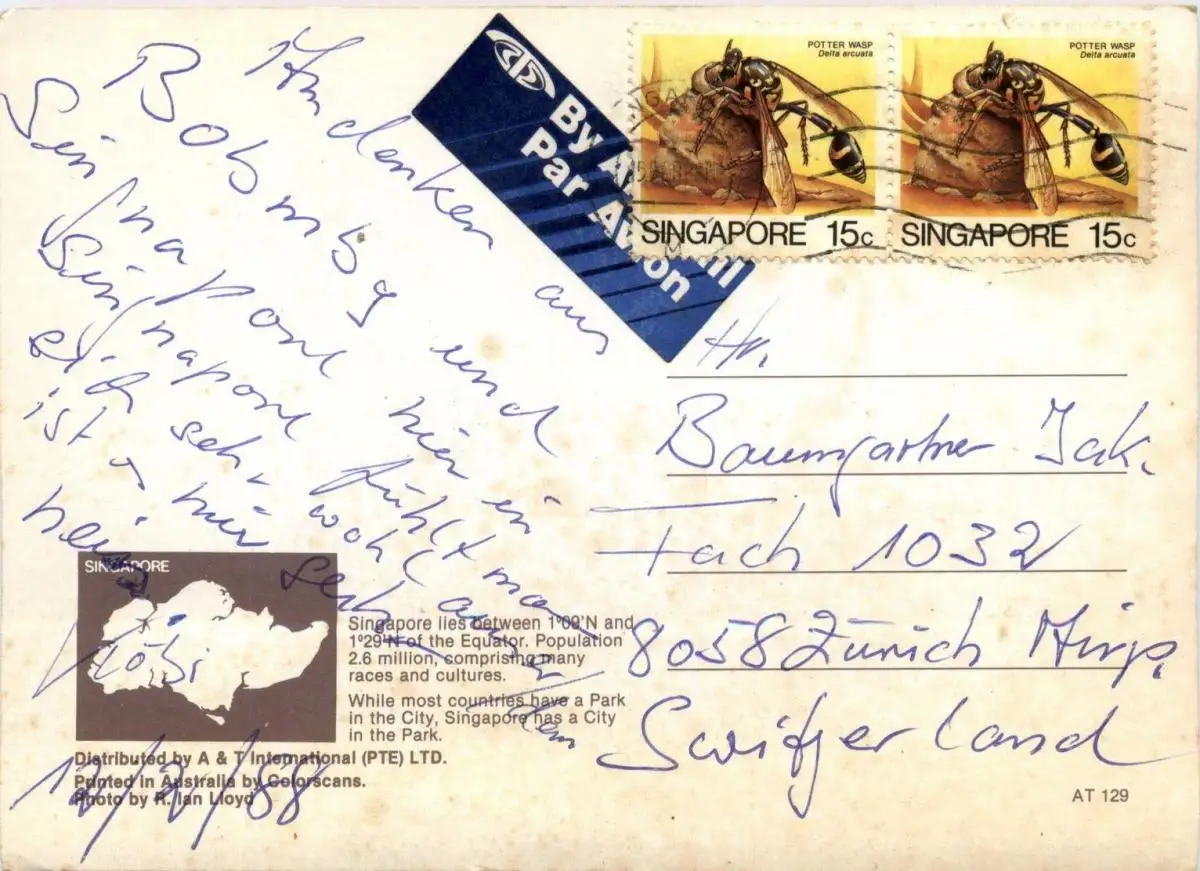 Andenken aus
und
Singapore hier in
Singapore fühlt man
sich sehr wohl
ist hier sehr
Köbi
12/2/88
By Air Mail
Par Avion
POTTER WASP
Delta arcuata
SINGAPORE 15c
POTTER WASP
Delta arcuata
SINGAPORE 15c
Hr.
Baumgartner Jak.
Fach 1032
8058 Zürich
Switzerland
SINGAPORE
Singapore lies between 1°09'N and
1°29'N of the Equator. Population
2.6 million, comprising many
races and cultures.
While most countries have a Park
in the City, Singapore has a City
in the Park.
Distributed by A & T International (PTE) LTD.
Printed in Australia by Colorscans.
Photo by R. Ian Lloyd
AT 129